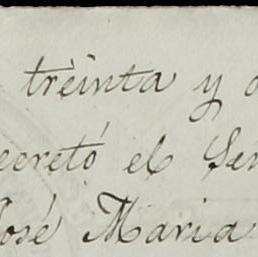 treinta y
ecretó el Señ
José Maria